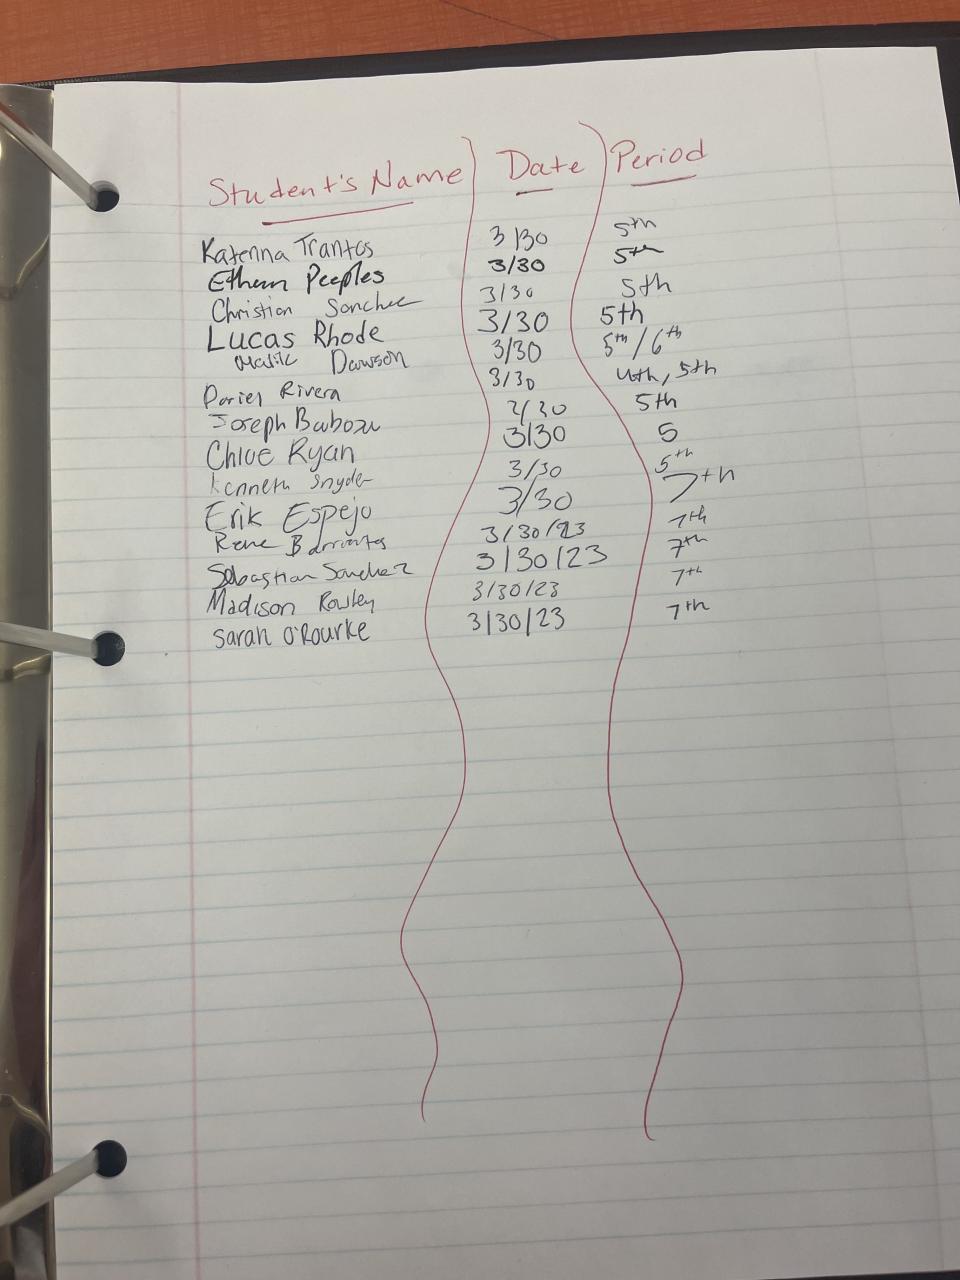 Student's Name Date Period
Katerina Trantos 3/30 5th
Ethan Peeples 3/30 5th
Christian Sanchez 3/30 5th
Lucas Rhode 3/30 5th
Malik Dawson 3/30 5th/6th
Rivera 3/30 4th, 5th
Joseph 3/30 5th
Chloe Ryan 3/30 5
Kenneth Snyder 3/30 5th
Erik Espejo 3/30 7th
Rene Barrientos 3/30/23 7th
Sebastian Sanchez 3/30/23 7th
Madison Rowley 3/30/23 7th
Sarah O'Rourke 3/30/23 7th